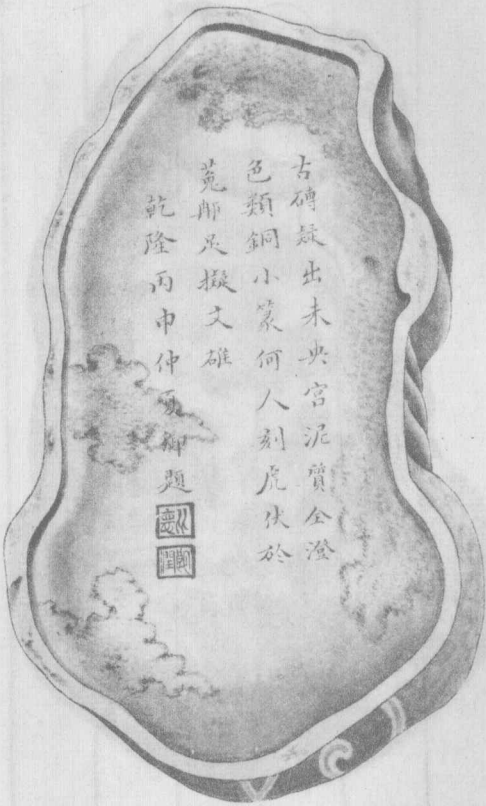 古磚疑出未央宮泥質全澄
色類銅小篆何人刻虎伏於
菟那足擬文雄
乾隆丙申仲夏御題
比悳
朗潤